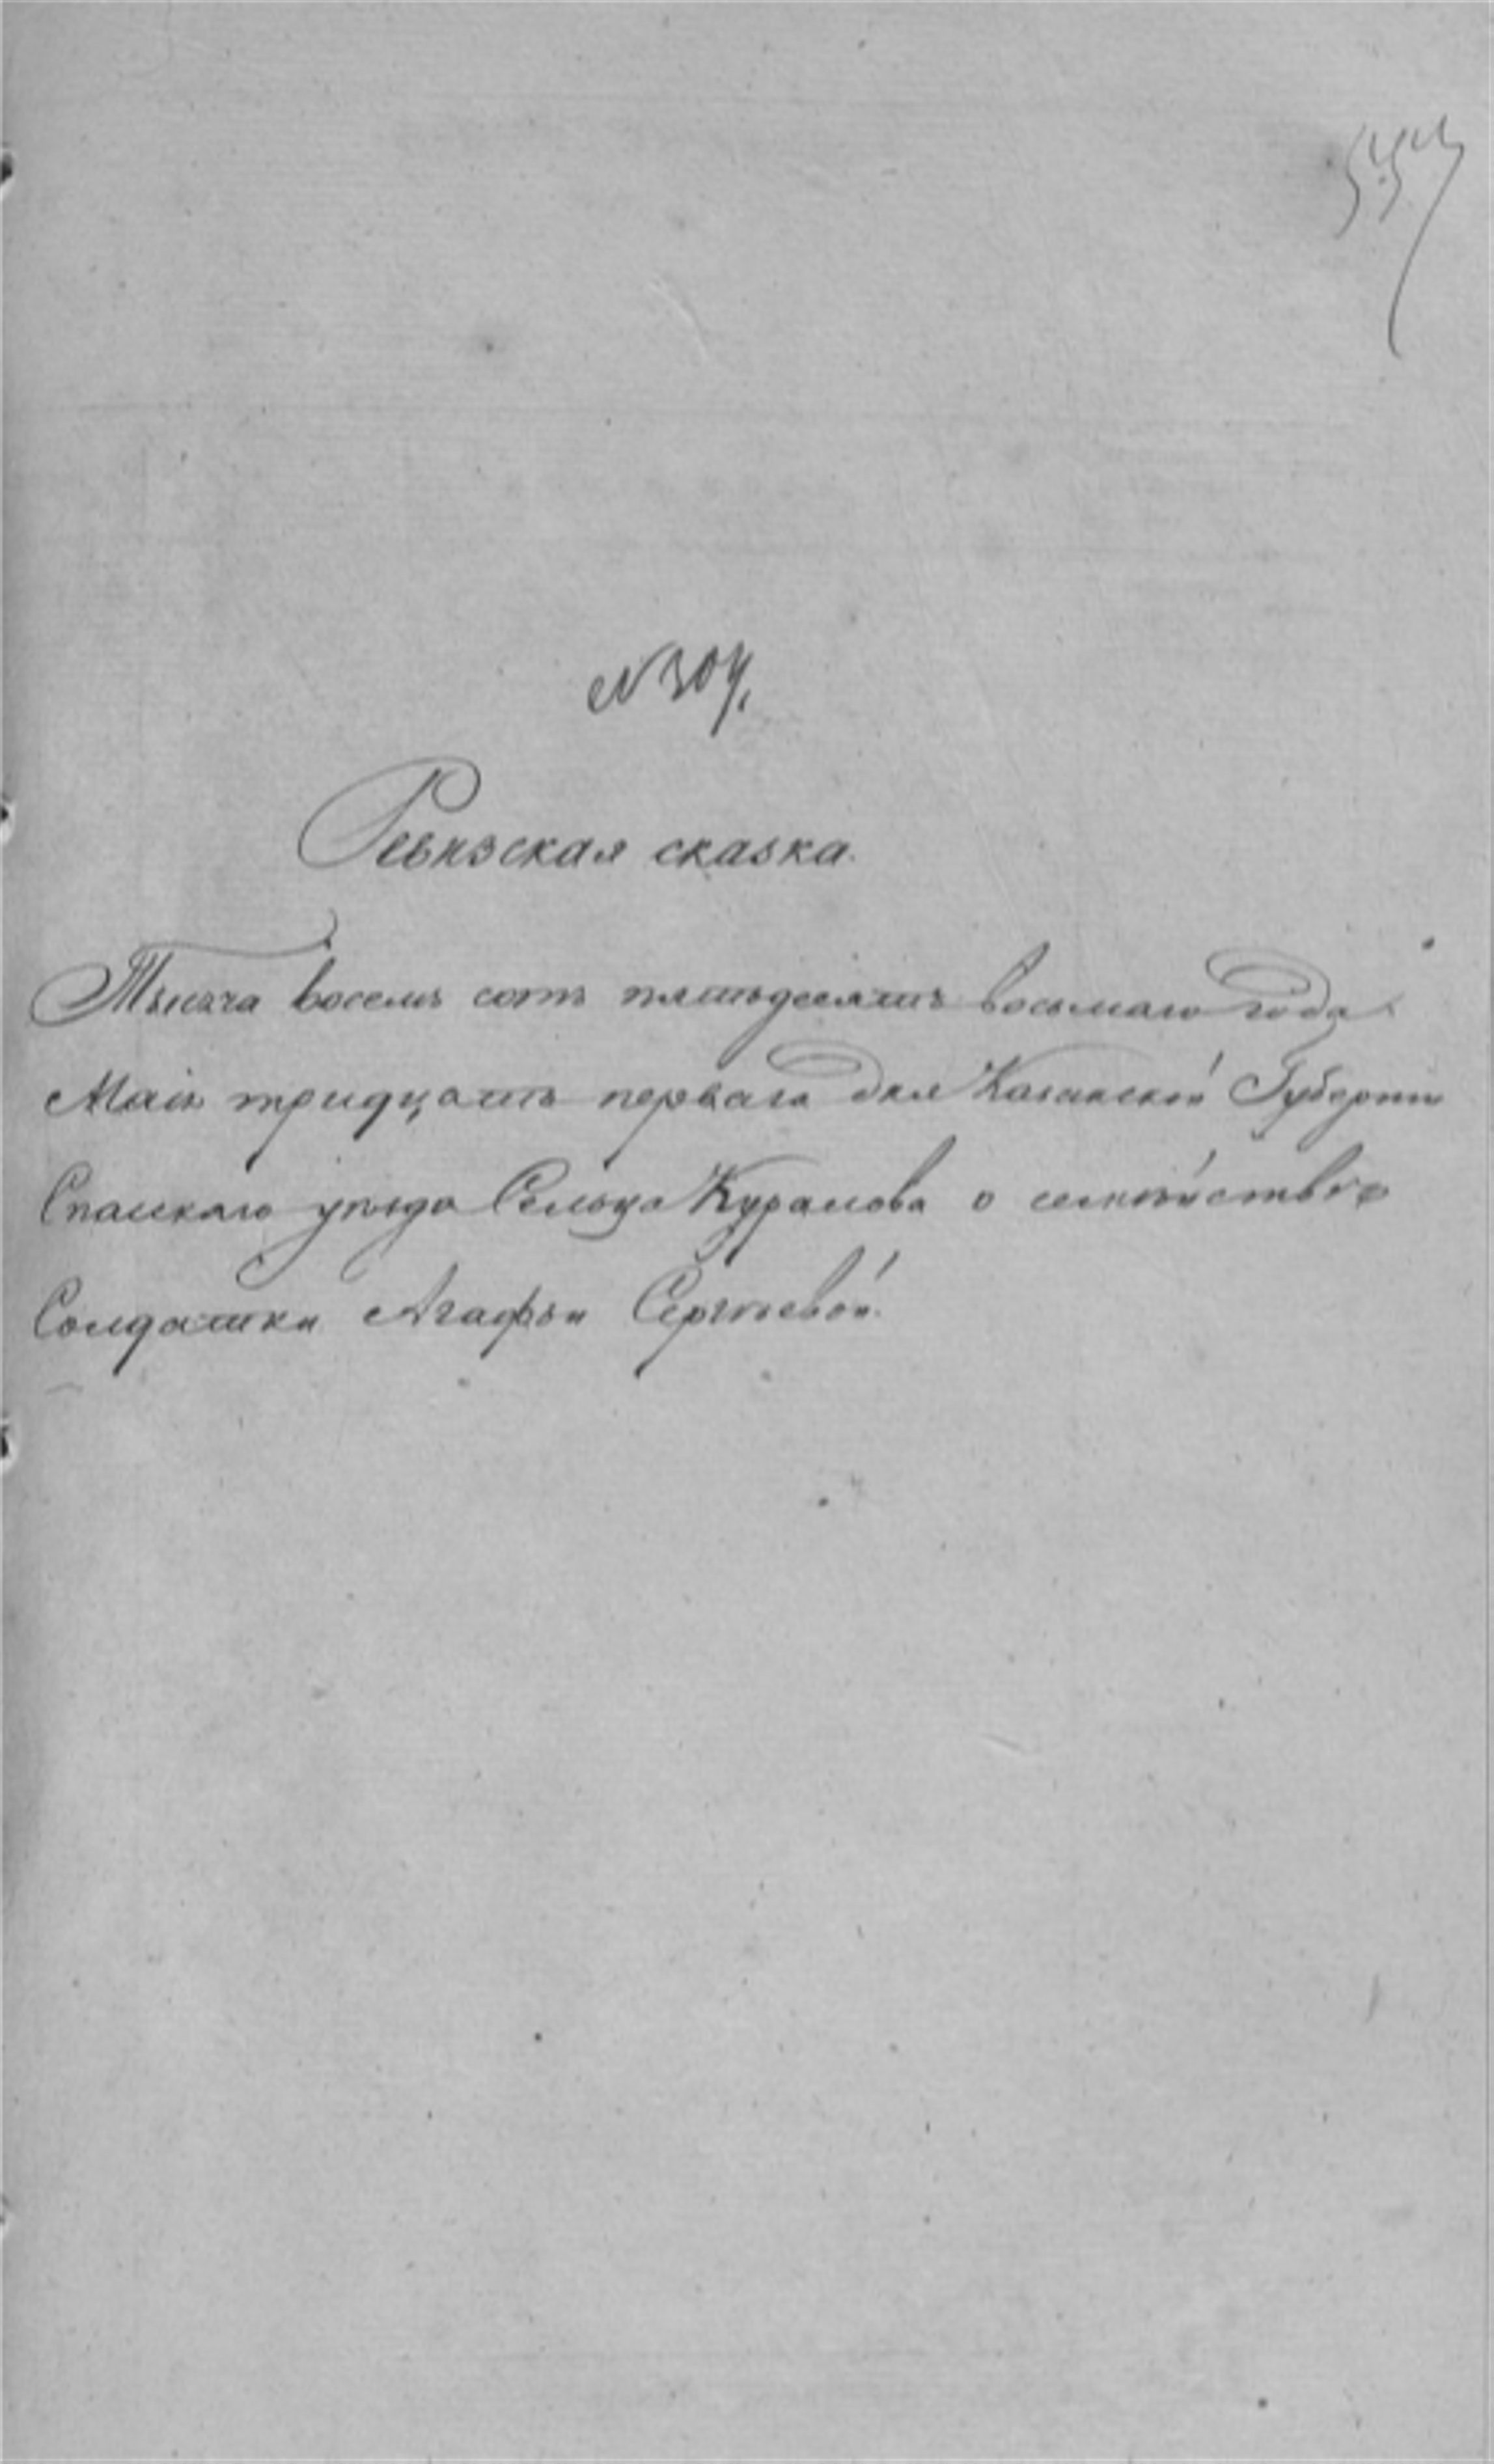 557
№ 304.
Ревизская сказка.
Тысяча восемь сотъ пятьдесятъ восьмаго года
Маія тридцать перваго дня Казанской Губерніи
Спасскаго уѣзда Сельца Курамова о семѣйствѣ
Солдатки Агафьи Сергѣевой.